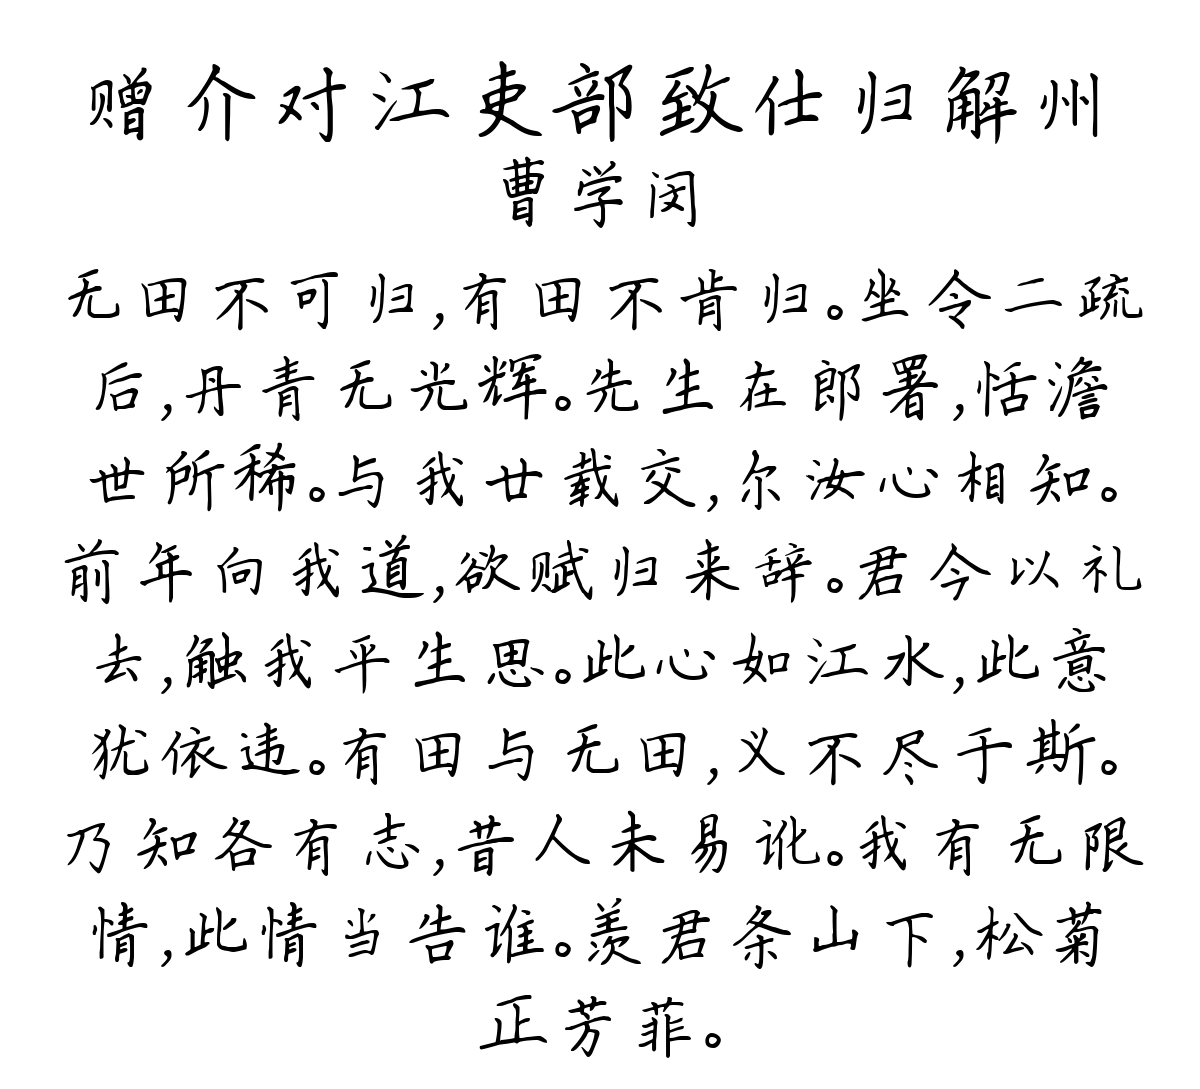 赠介对江吏部致仕归解州
曹学闵
无田不可归,有田不肯归。坐令二疏
后,丹青无光辉。先生在郎署,恬澹
世所稀。与我廿载交,尔汝心相知。
前年向我道,欲赋归来辞。君今以礼
去,触我平生思。此心如江水,此意
犹依违。有田与无田,义不尽于斯。
乃知各有志,昔人未易讹。我有无限
情,此情当告谁。羡君条山下,松菊
正芳菲。